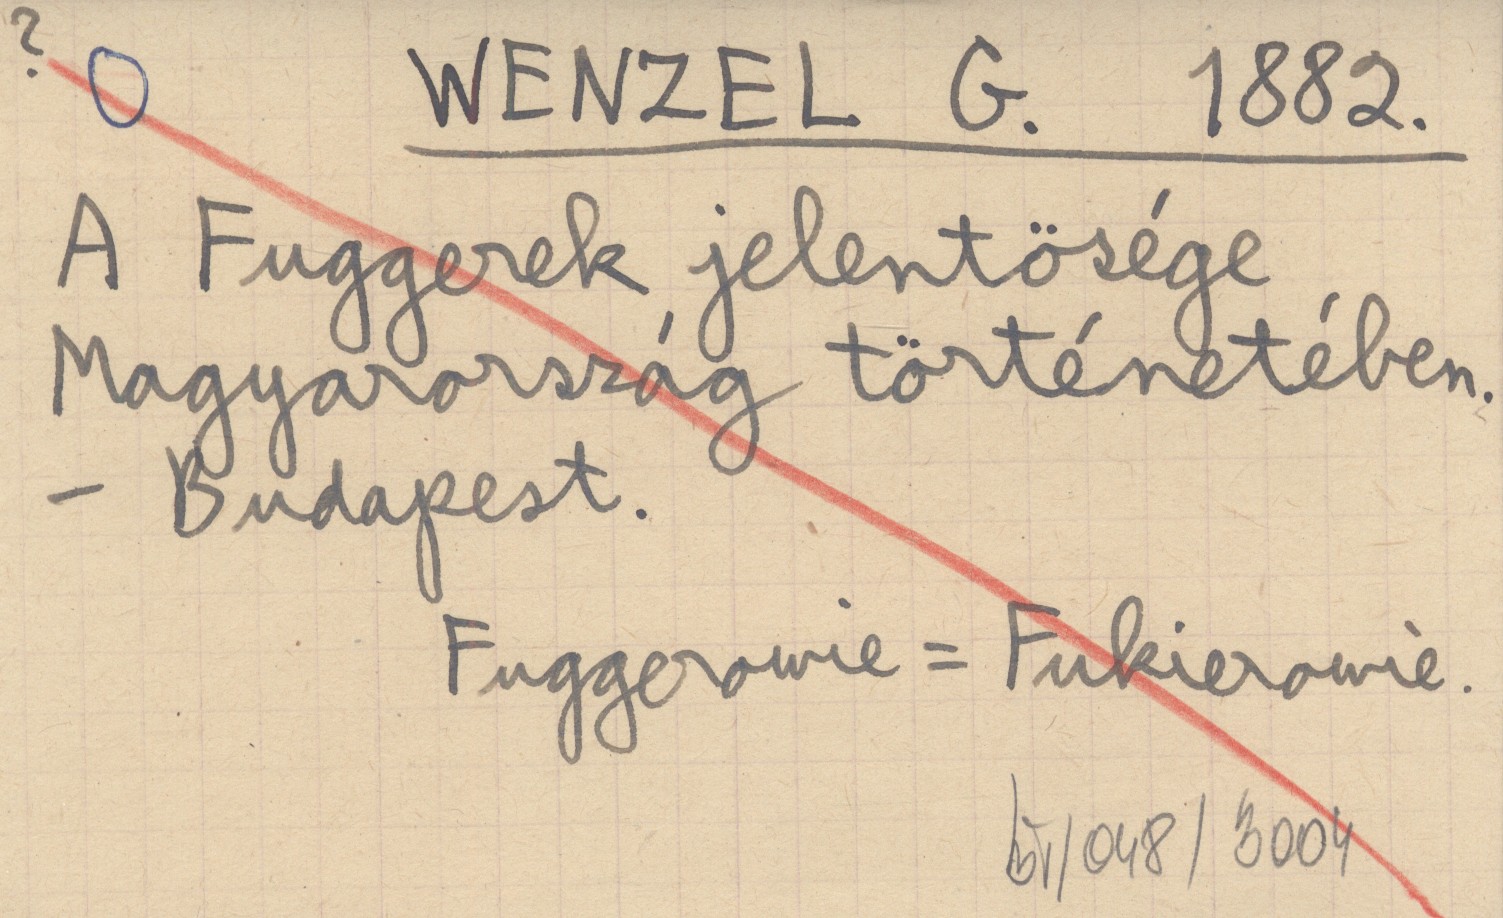 ?
O WENZEL G. 1882.
A Fuggerek jelentösége
Magyarország történetében.
- Budapest.
Fuggerowie = Fukierowie.
/048/3004